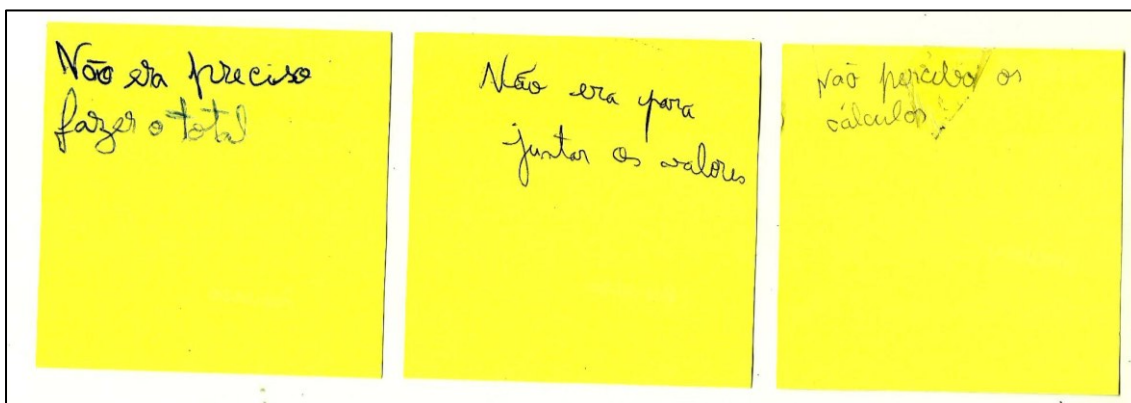 Não era preciso
fazer o total
Não era para
juntar os valores
Não percebo os
cálculos